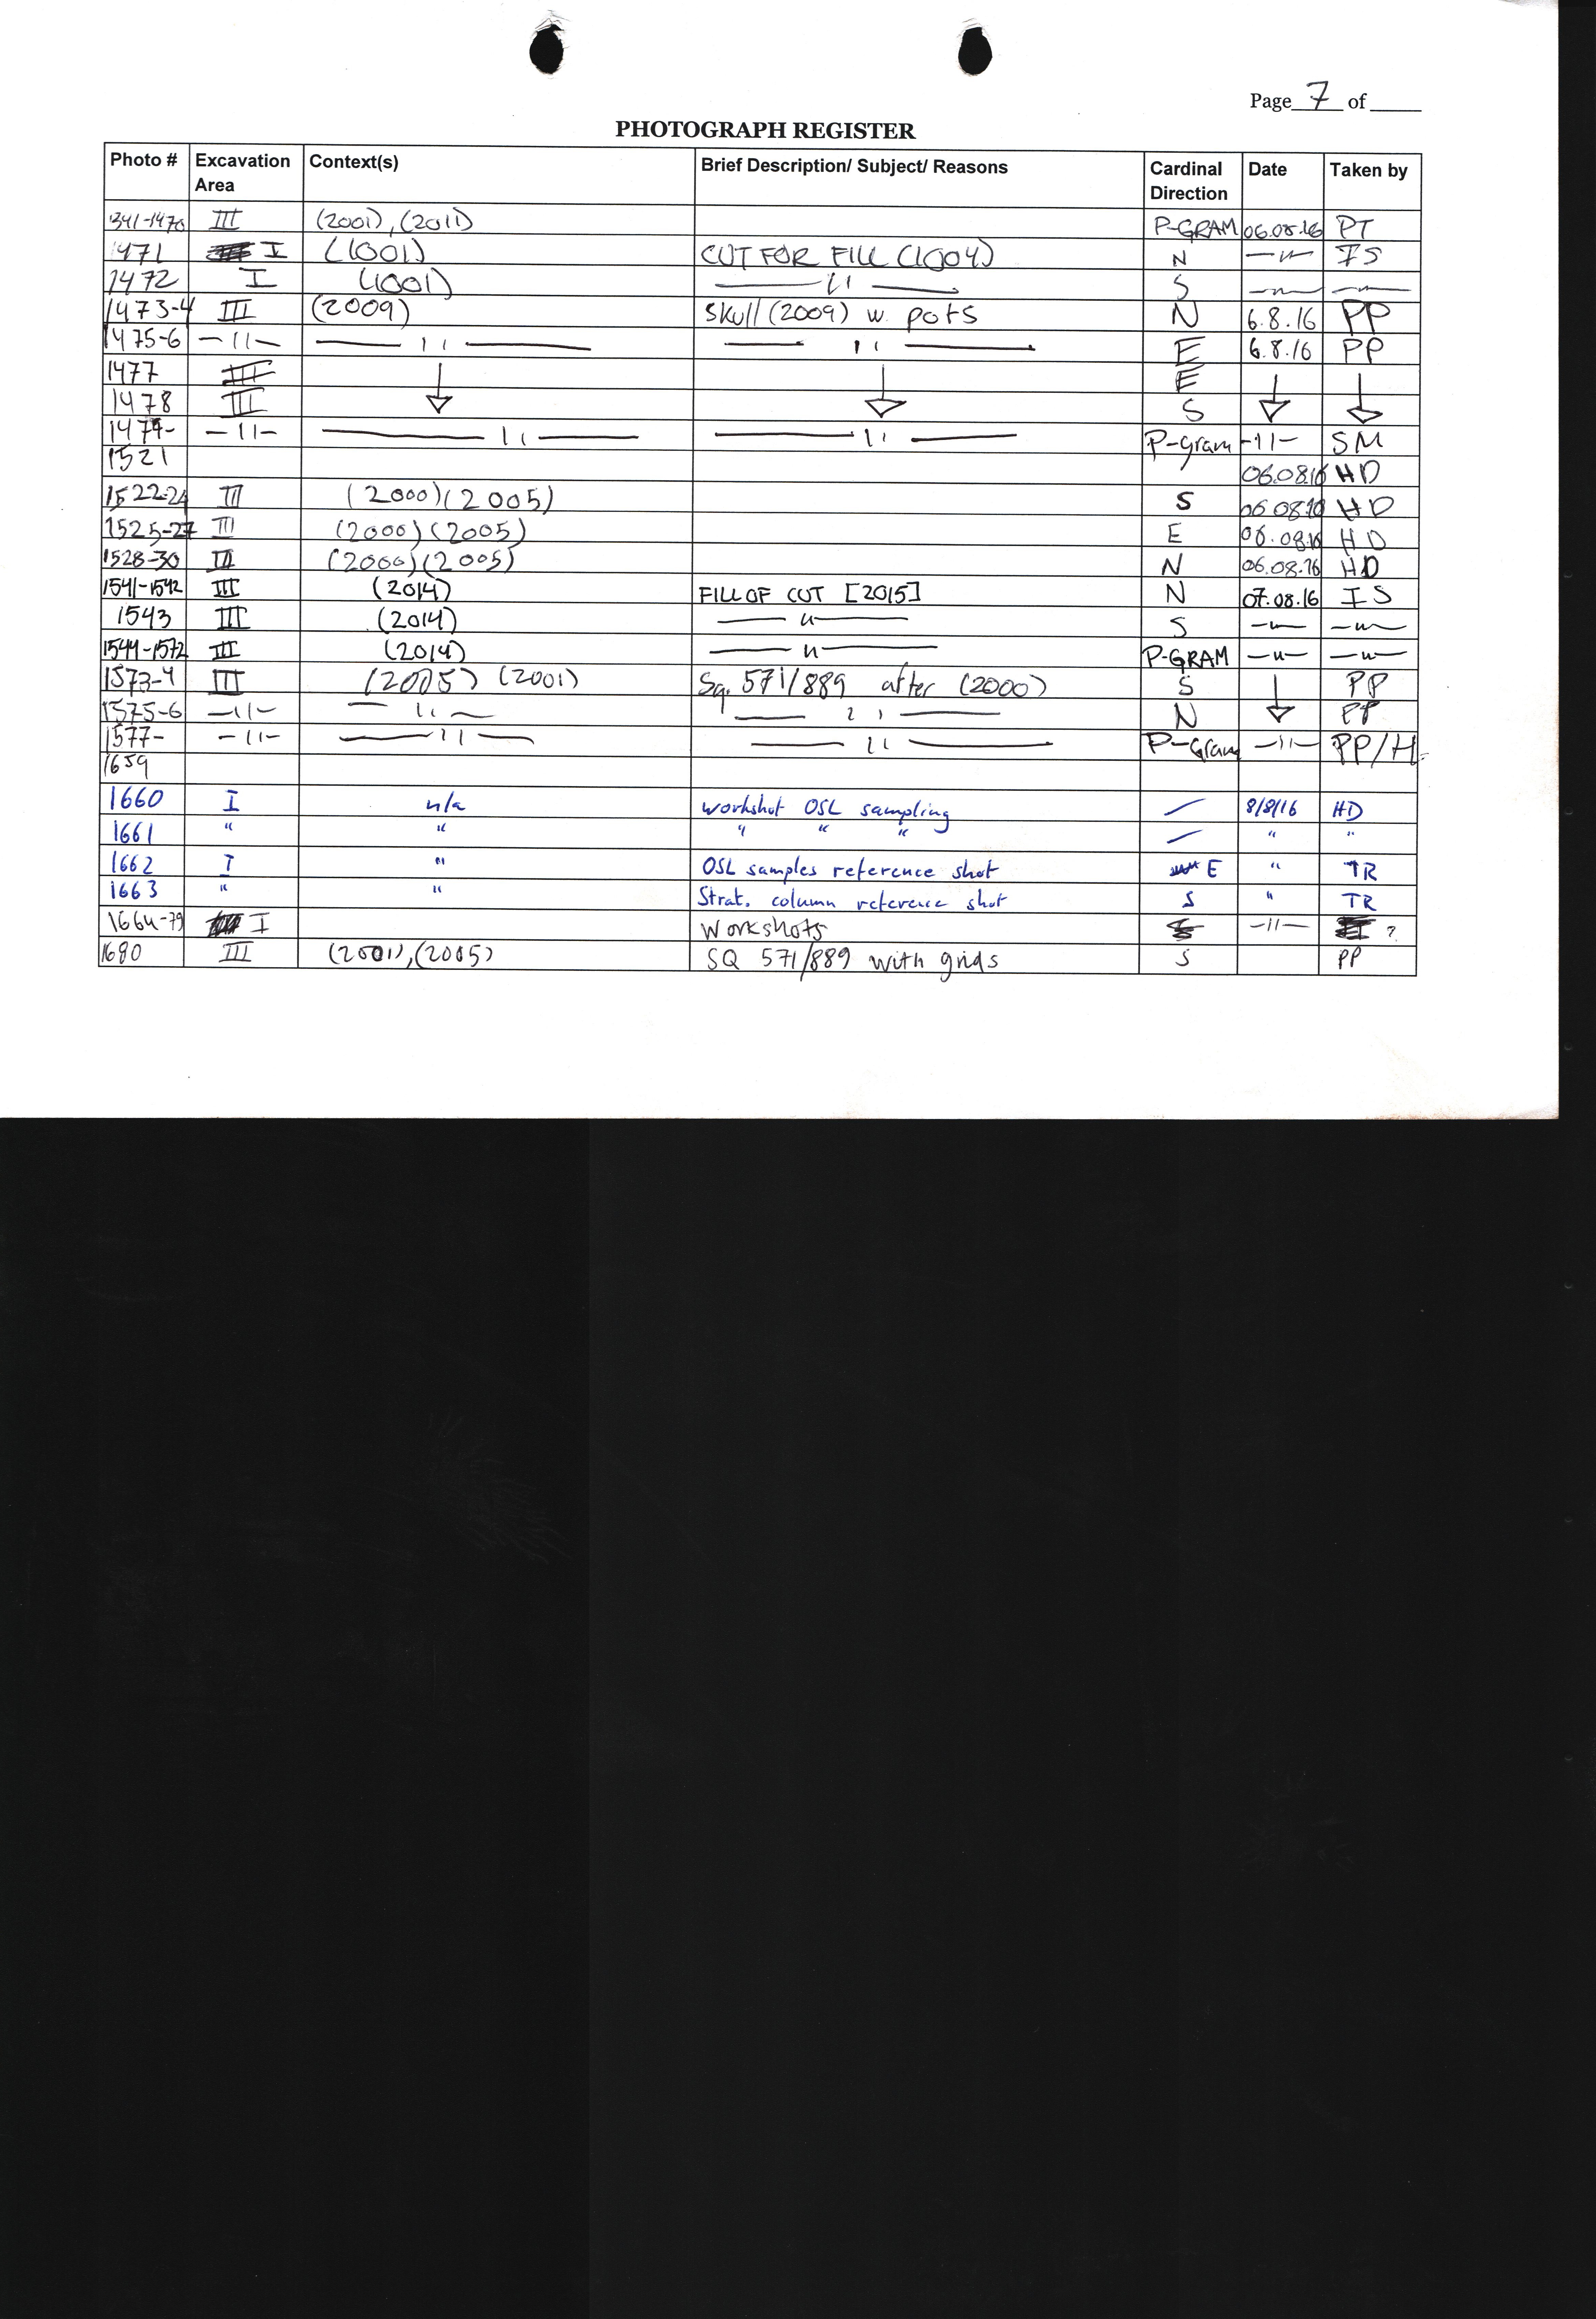 Page 7 of
PHOTOGRAPH REGISTER
Photo # Excavation Area Context(s) Brief Description/ Subject/ Reasons Cardinal Direction Date Taken by
1341-1470 III (2001), (2011) P-GRAM 06.08.16 PT
1471 I (1001) CUT FOR FILL (1004) N —〃— IS
1472 I (1001) —〃— S —〃— —〃—
1473-4 III (2009) Skull (2009) w. pots N 6.8.16 PP
1475-6 —〃— —〃— —〃— E 6.8.16 PP
1477 III ↓ ↓ E ↓ ↓
1478 III S
1479- —〃— —〃— —〃— P-gram —〃— SM
1521 06.08.16 HD
1522-24 III (2000)(2005) S 06.08.16 HD
1525-27 III (2000)(2005) E 06.08.16 HD
1528-30 III (2000)(2005) N 06.08.16 HD
1541-1542 III (2014) FILL OF CUT [2015] N 07.08.16 IS
1543 III (2014) —〃— S —〃— —〃—
1544-1572 III (2014) —〃— P-GRAM —〃— —〃—
1573-4 III (2005) (2001) Sq. 571/889 after (2000) S ↓ PP
1575-6 —〃— —〃— —〃— N PP
1577- —〃— —〃— —〃— P-Gram —〃— PP/H
1659
1660 I n/a workshot OSL sampling — 8/8/16 HD
1661 " " " " " — " "
1662 I " OSL samples reference shot E " TR
1663 " " Strat. column reference shot S " TR
1664-79 I Workshots —〃— ?
1680 III (2001), (2005) SQ 571/889 with grids S PP